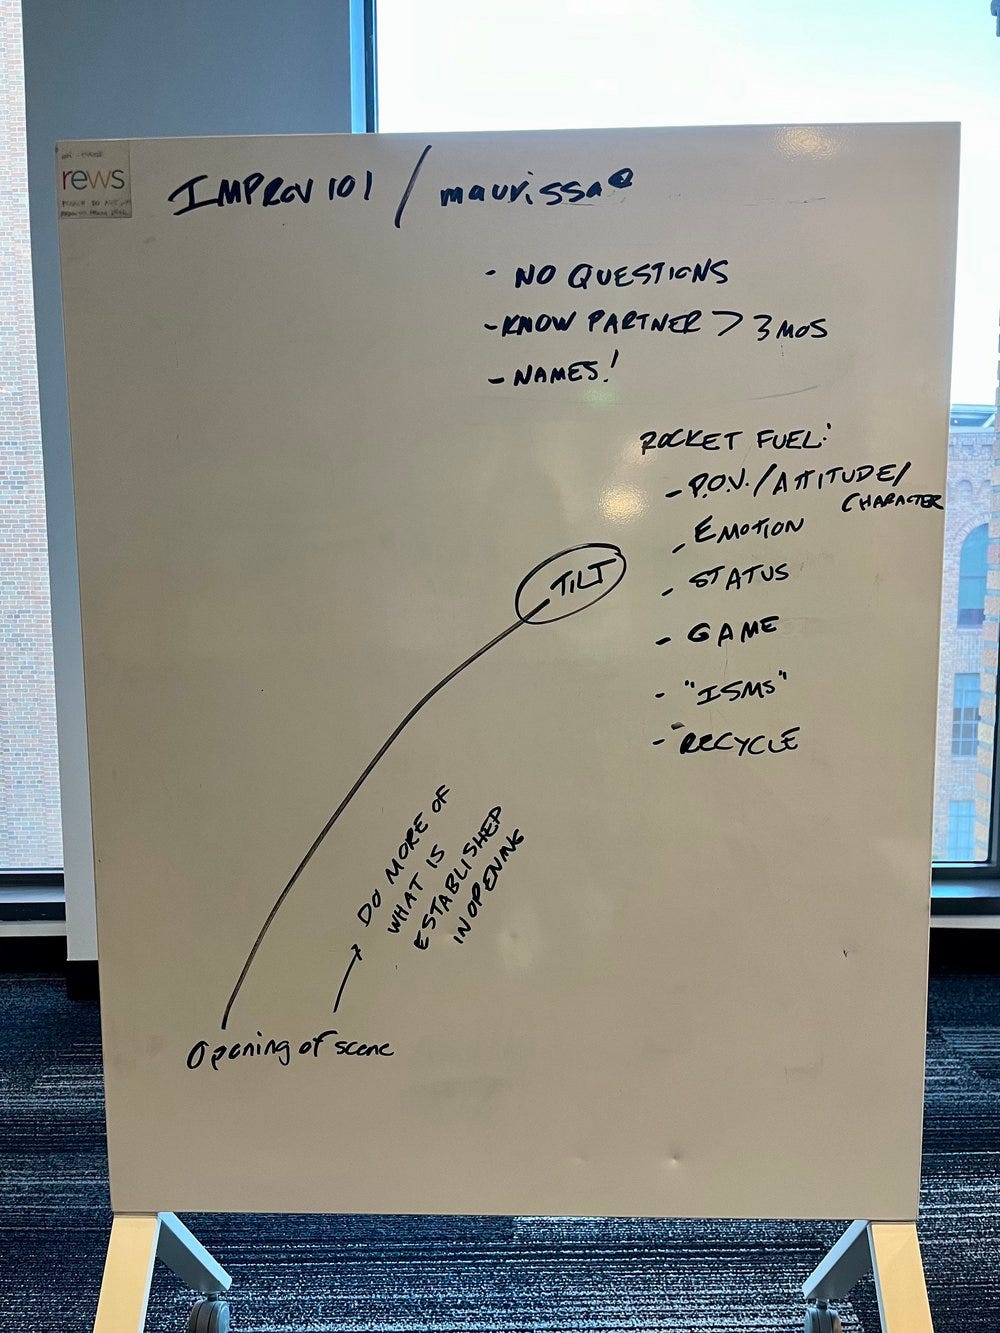 rews
IMPROV 101 / maurissa@
- NO QUESTIONS
- KNOW PARTNER > 3 MOS
- NAMES!
ROCKET FUEL:
- P.O.V. / ATTITUDE /
CHARACTER
- EMOTION
- STATUS
- GAME
- "ISMS"
- RECYCLE
TILT
DO MORE OF
WHAT IS
ESTABLISHED
IN OPENING
Opening of scene